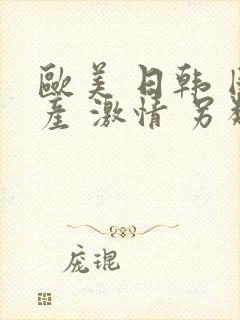 歐美 日韩
產 激情 另
庞琨